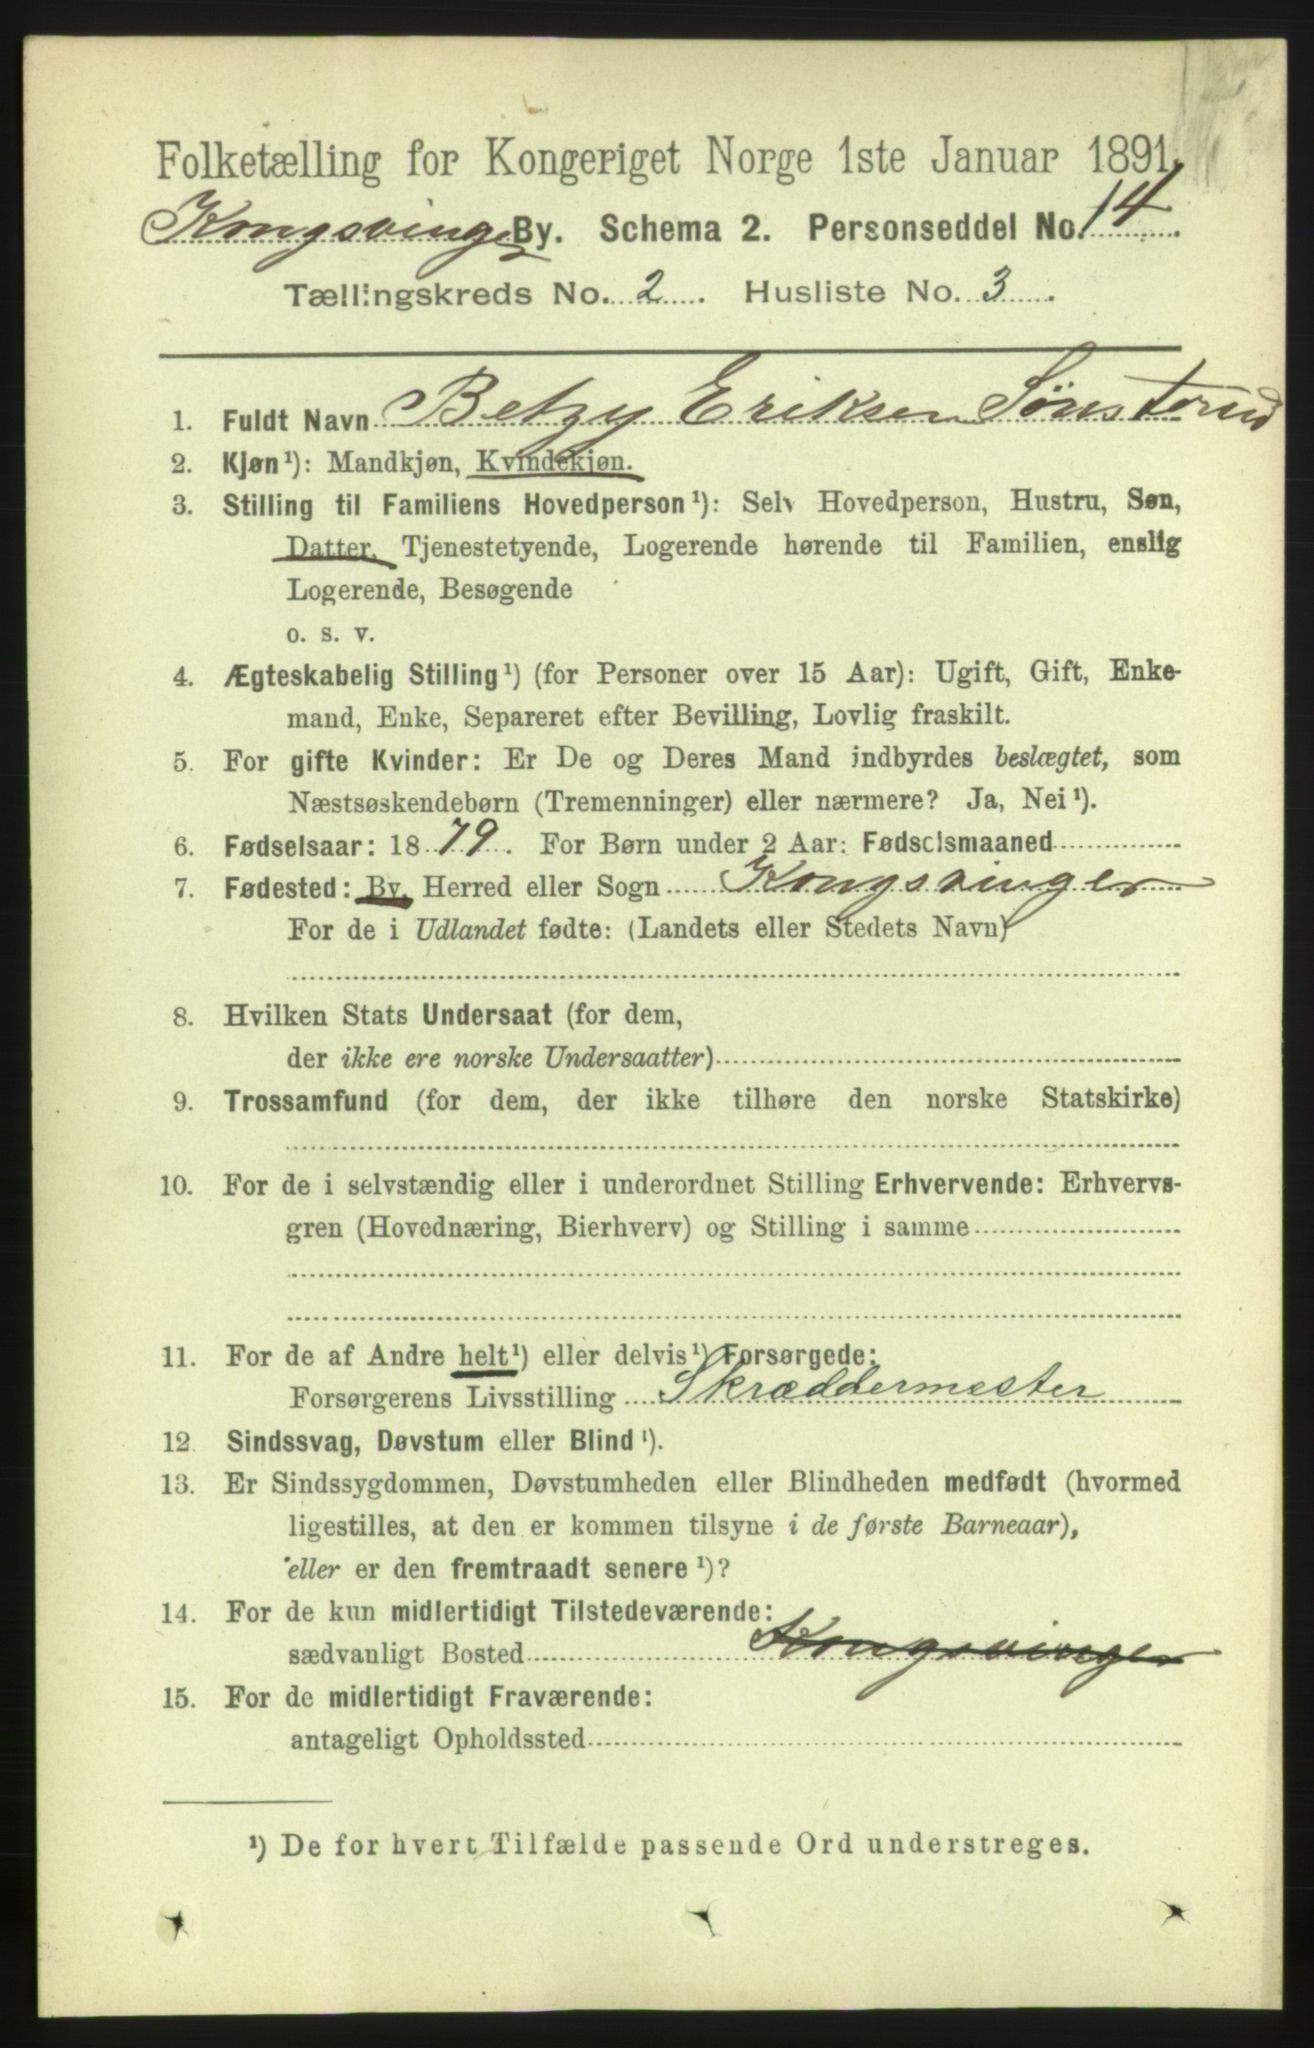 Folketælling for Kongeriget Norge 1ste Januar 1891.
Kongsvinger By. Schema 2. Personseddel No. 14
Tællingskreds No. 2. Husliste No. 3.
1. Fuldt Navn Betzy Eriksen Sønsterud
2. Kjøn¹): Mandkjøn, Kvindekjøn.
3. Stilling til Familiens Hovedperson¹): Selv Hovedperson, Hustru, Søn,
Datter, Tjenestetyende, Logerende hørende til Familien, enslig
Logerende, Besøgende
o. s. v.
4. Ægteskabelig Stilling¹) (for Personer over 15 Aar): Ugift, Gift, Enke-
mand, Enke, Separeret efter Bevilling, Lovlig fraskilt.
5. For gifte Kvinder: Er De og Deres Mand indbyrdes beslægtet, som
Næstsøskendebørn (Tremenninger) eller nærmere? Ja, Nei¹).
6. Fødselsaar: 1879. For Børn under 2 Aar: Fødselsmaaned
7. Fødested: By, Herred eller Sogn Kongsvinger
For de i Udlandet fødte: (Landets eller Stedets Navn)
8. Hvilken Stats Undersaat (for dem,
der ikke ere norske Undersaatter)
9. Trossamfund (for dem, der ikke tilhøre den norske Statskirke)
10. For de i selvstændig eller i underordnet Stilling Erhvervende: Erhvervs-
gren (Hovednæring, Bierhverv) og Stilling i samme
11. For de af Andre helt¹) eller delvis¹) Forsørgede:
Forsørgerens Livsstilling Skræddermester
12. Sindssvag, Døvstum eller Blind¹).
13. Er Sindssygdommen, Døvstumheden eller Blindheden medfødt (hvormed
ligestilles, at den er kommen tilsyne i de første Barneaar),
eller er den fremtraadt senere¹)?
14. For de kun midlertidigt Tilstedeværende:
sædvanligt Bosted Kongsvinger
15. For de midlertidigt Fraværende:
antageligt Opholdssted
¹) De for hvert Tilfælde passende Ord understreges.